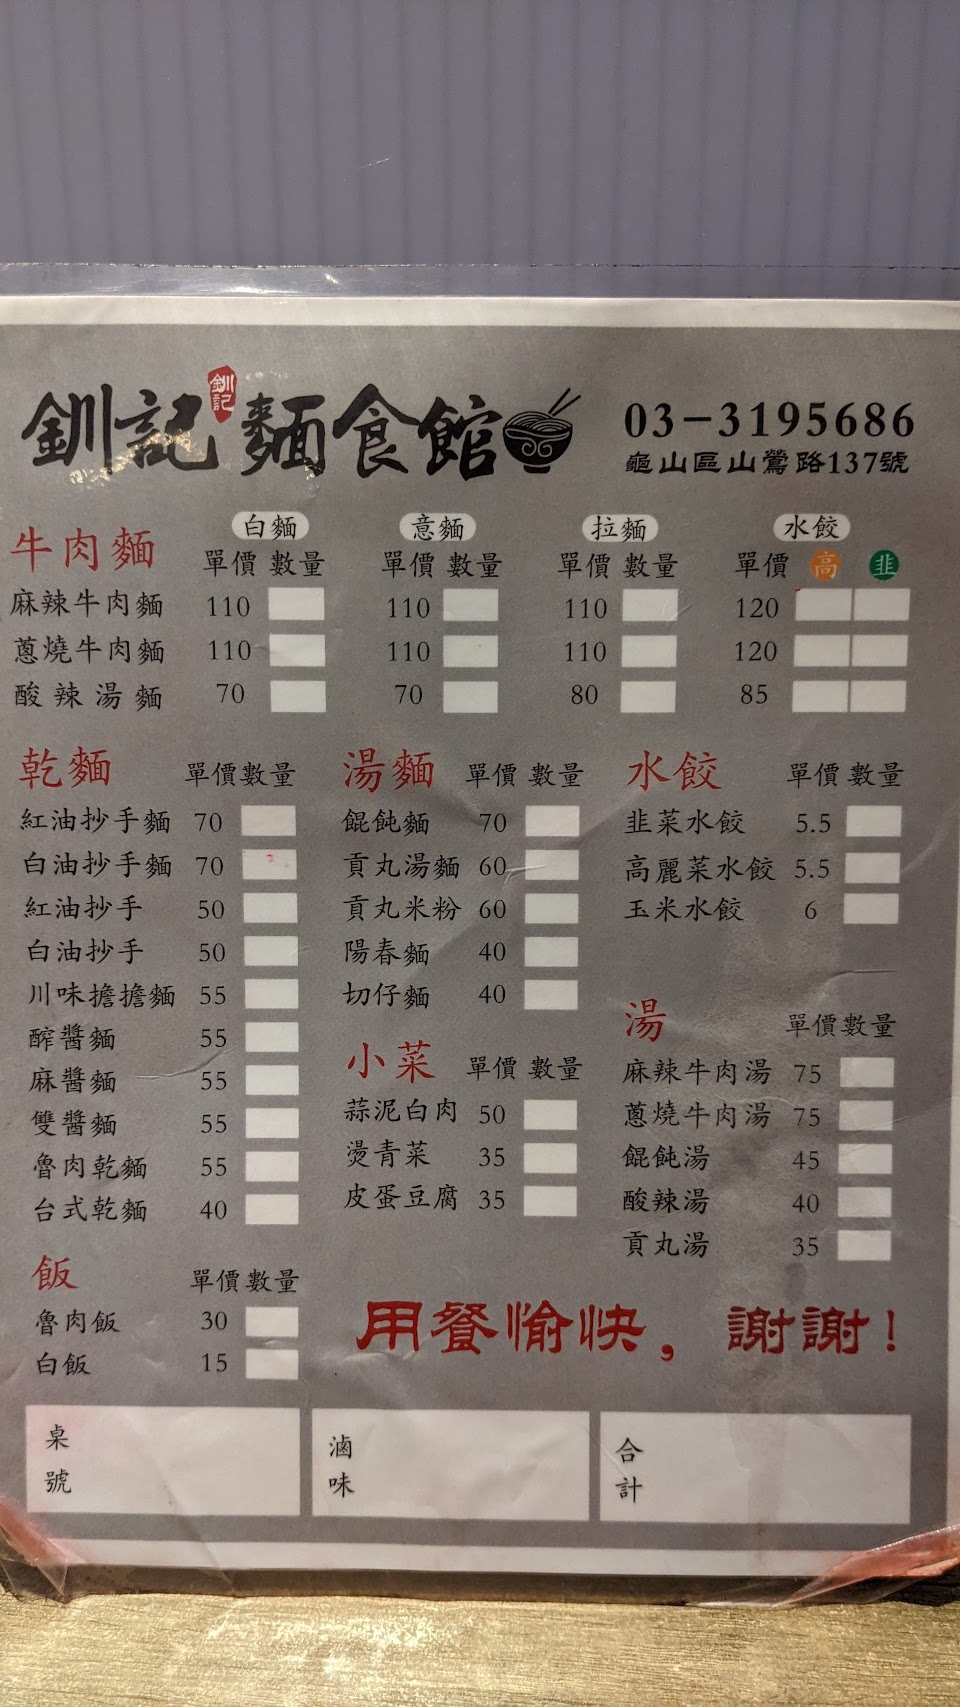 釧記麵食館
釧記
03-3195686
龜山區山鶯路137號
牛肉麵 白麵 意麵 拉麵 水餃
單價 數量 單價 數量 單價 數量 單價 高 韭
麻辣牛肉麵 110 110 110 120
蔥燒牛肉麵 110 110 110 120
酸辣湯麵 70 70 80 85
乾麵 單價 數量
紅油抄手麵 70
白油抄手麵 70
紅油抄手 50
白油抄手 50
川味擔擔麵 55
醡醬麵 55
麻醬麵 55
雙醬麵 55
魯肉乾麵 55
台式乾麵 40
飯 單價 數量
魯肉飯 30
白飯 15
湯麵 單價 數量
餛飩麵 70
貢丸湯麵 60
貢丸米粉 60
陽春麵 40
切仔麵 40
小菜 單價 數量
蒜泥白肉 50
燙青菜 35
皮蛋豆腐 35
水餃 單價 數量
韭菜水餃 5.5
高麗菜水餃 5.5
玉米水餃 6
湯 單價 數量
麻辣牛肉湯 75
蔥燒牛肉湯 75
餛飩湯 45
酸辣湯 40
貢丸湯 35
用餐愉快，謝謝！
桌號
滷味
合計